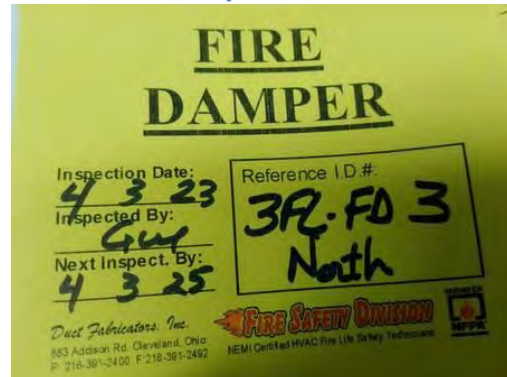 FIRE
DAMPER
Inspection Date:
4 3 23
Inspected By:
Guy
Next Inspect. By:
4 3 25
Reference I.D.#:
3FL-FD 3
North
Duct Fabricators, Inc.
883 Addison Rd. Cleveland, Ohio
P: 216-391-2400 F:216-391-2492
FIRE SAFETY DIVISION
NEMI Certified HVAC Fire Life Safety Technicians
MEMBER
NFPA